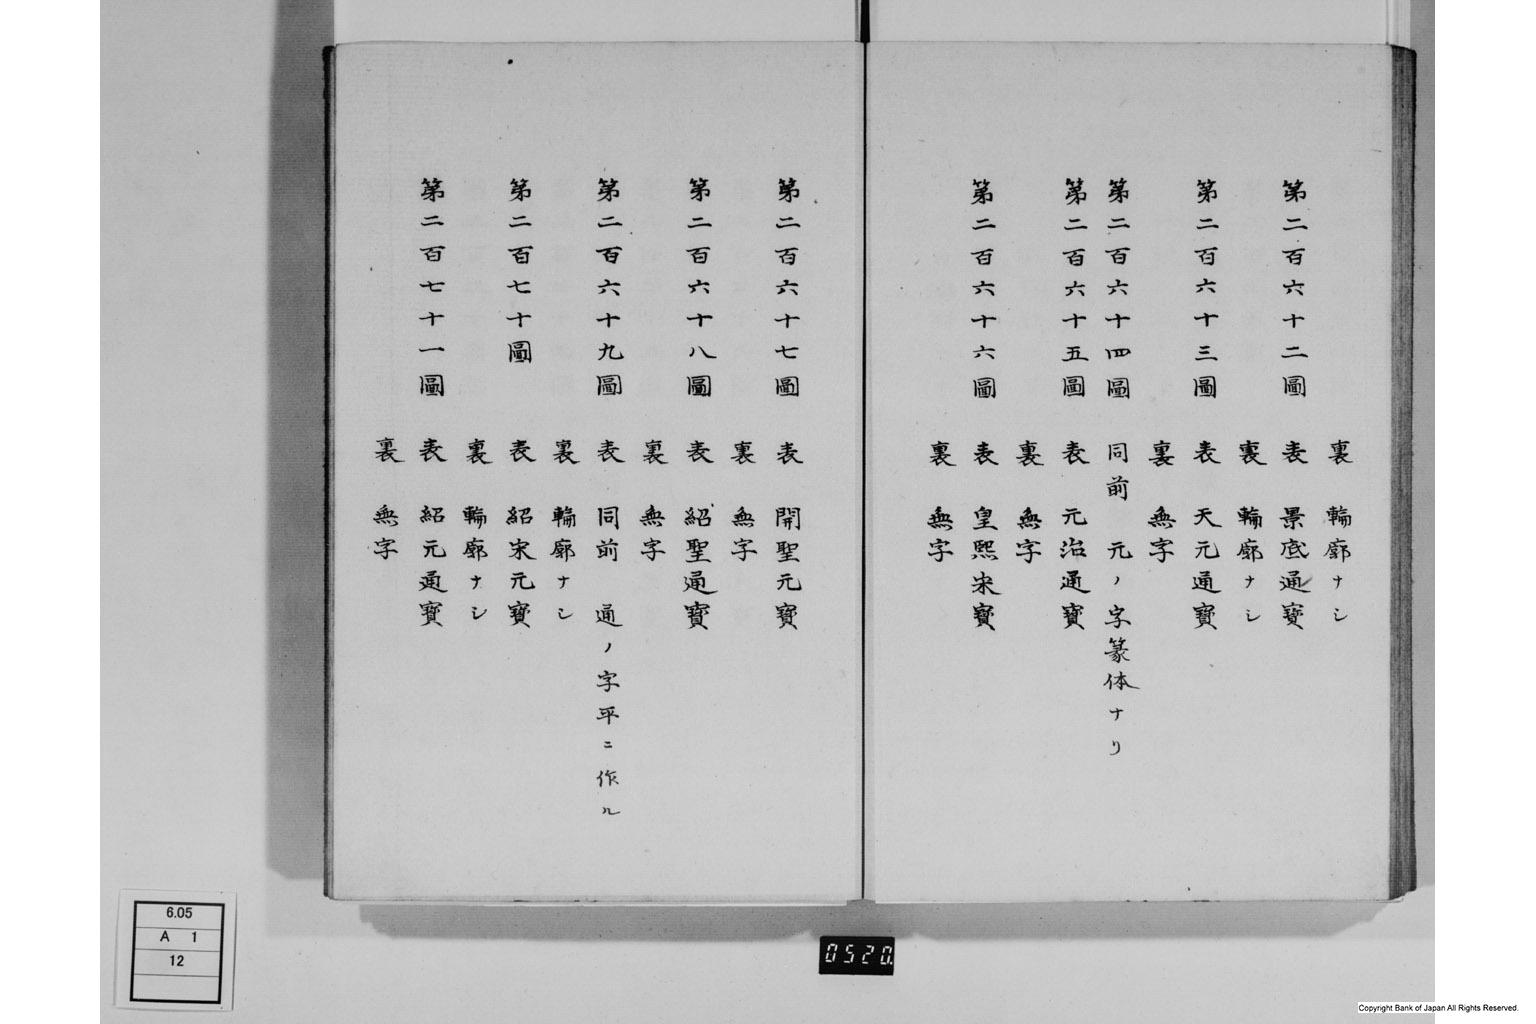 裏 輪廓ナシ
第二百六十二圖 表 景底通寶
裏 輪廓ナシ
第二百六十三圖 表 天元通寶
裏 無字
第二百六十四圖 同前 元ノ字篆体ナリ
第二百六十五圖 表 元治通寶
裏 無字
第二百六十六圖 表 皇熙宋寶
裏 無字
第二百六十七圖 表 開聖元寶
裏 無字
第二百六十八圖 表 紹聖通寶
裏 無字
第二百六十九圖 表 同前 通ノ字平ニ作ル
裏 輪廓ナシ
第二百七十圖 表 紹宋元寶
裏 輪廓ナシ
第二百七十一圖 表 紹元通寶
裏 無字
6.05
A 1
12
0520
Copyright Bank of Japan All Rights Reserved.